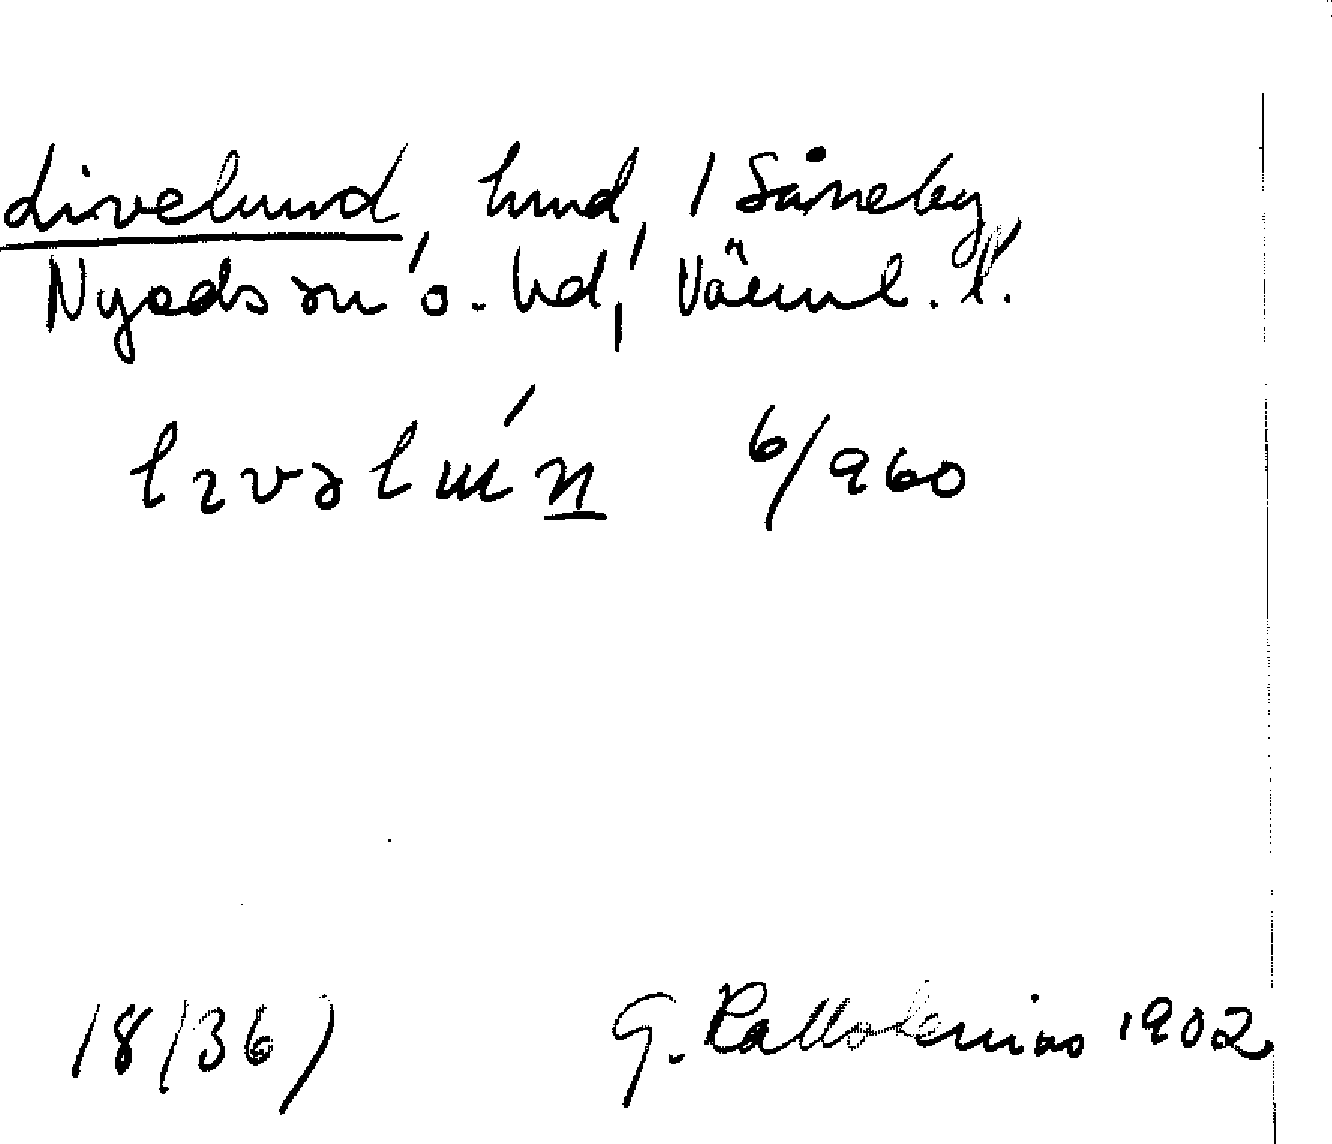 Livelund, lund, i Såneby,
Nyeds sn o. hd, Värml. l.
lɪvəlɯ́n 6/960
18(36) G. Kallstenius 1902